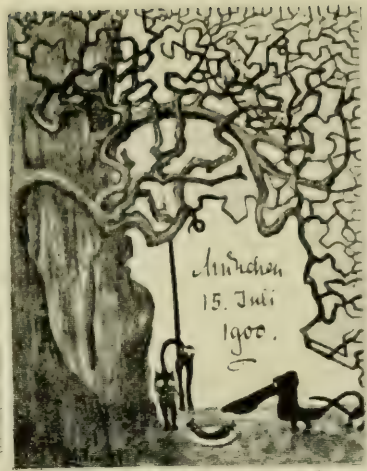 München
15. Juli
1900.